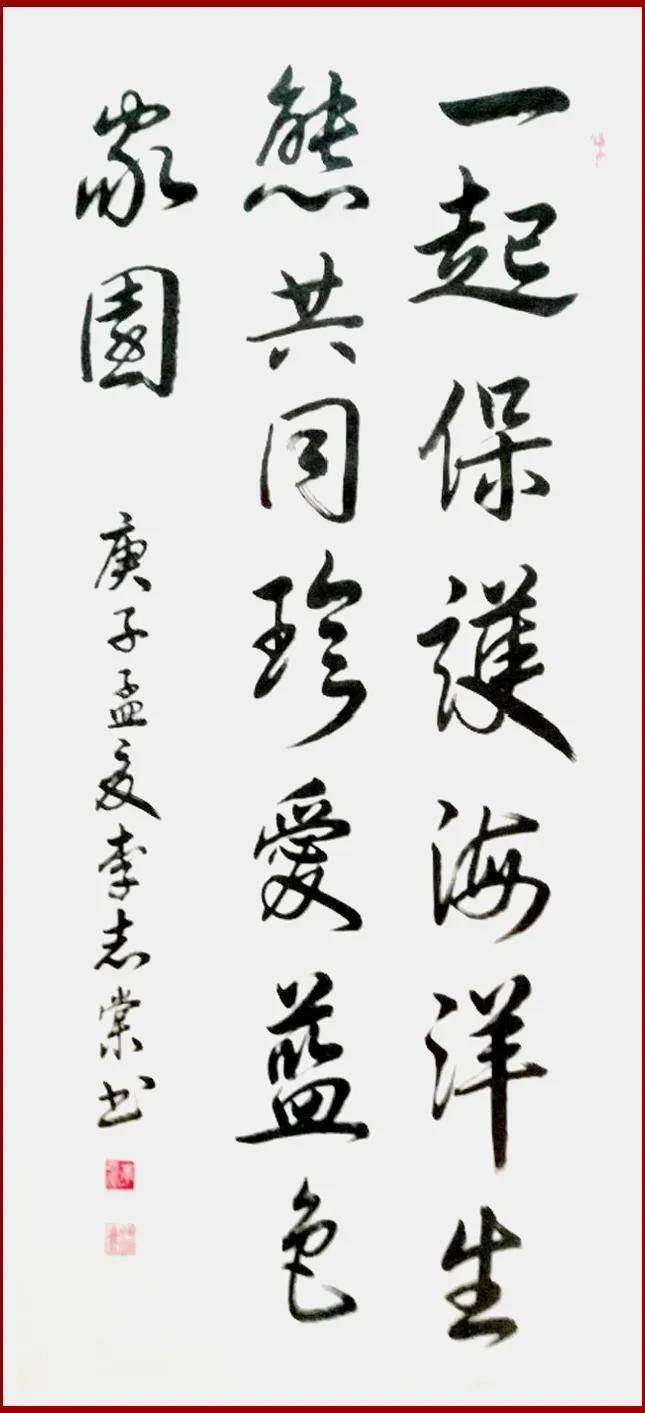 一起保護海洋生
態共同珍愛藍色
家園
庚子孟夏李志棠书